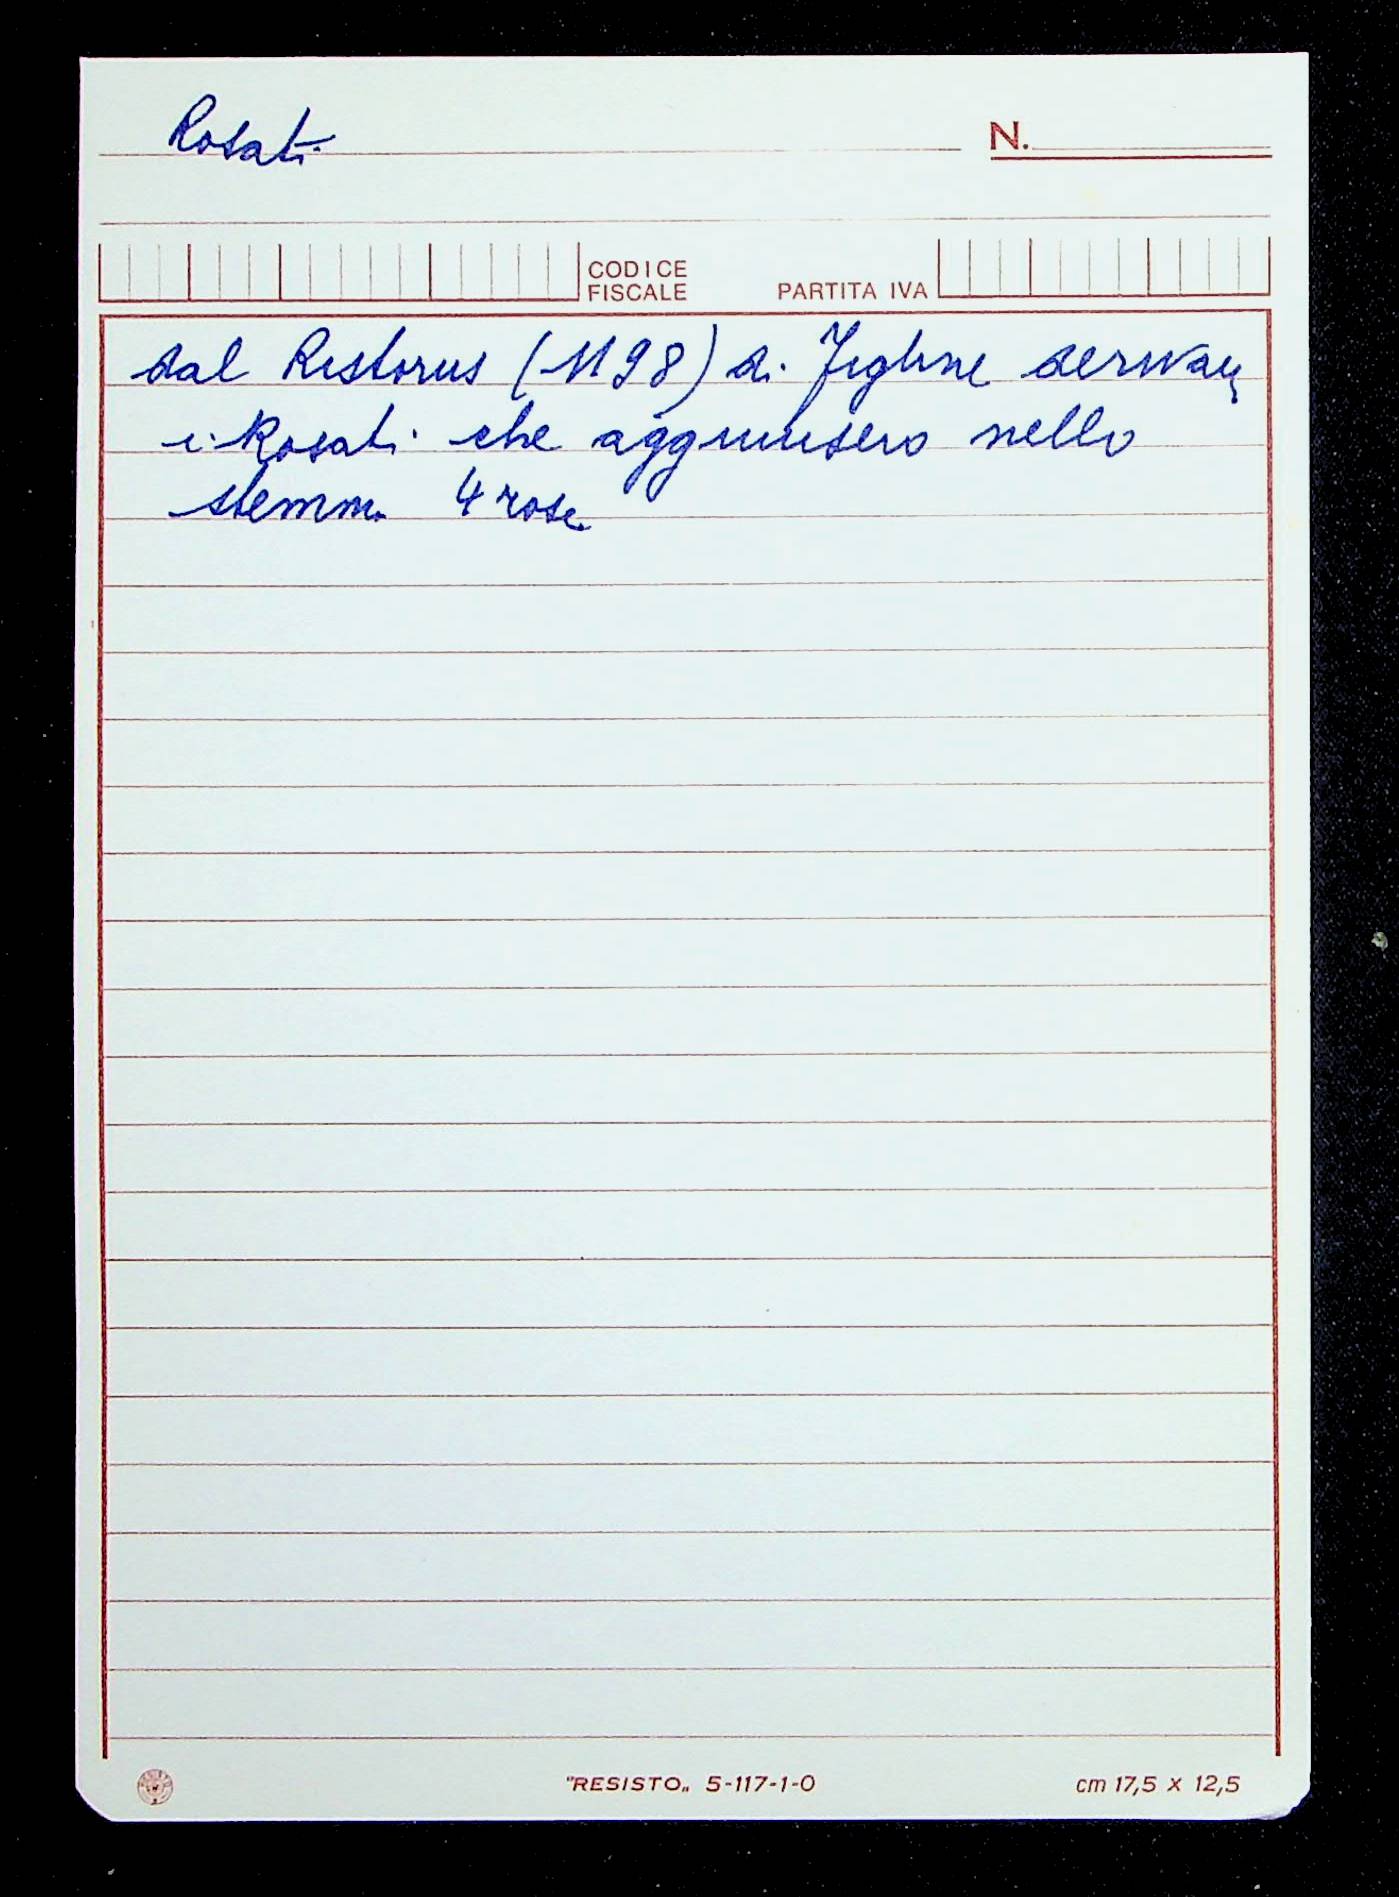 Rosati
N.
CODICE
FISCALE
PARTITA IVA
dal Ristorus (1198) di Figline derivan
i Rosati che aggiunsero nello
stemma 4 rose
"RESISTO„ 5-117-1-0
cm 17,5 x 12,5